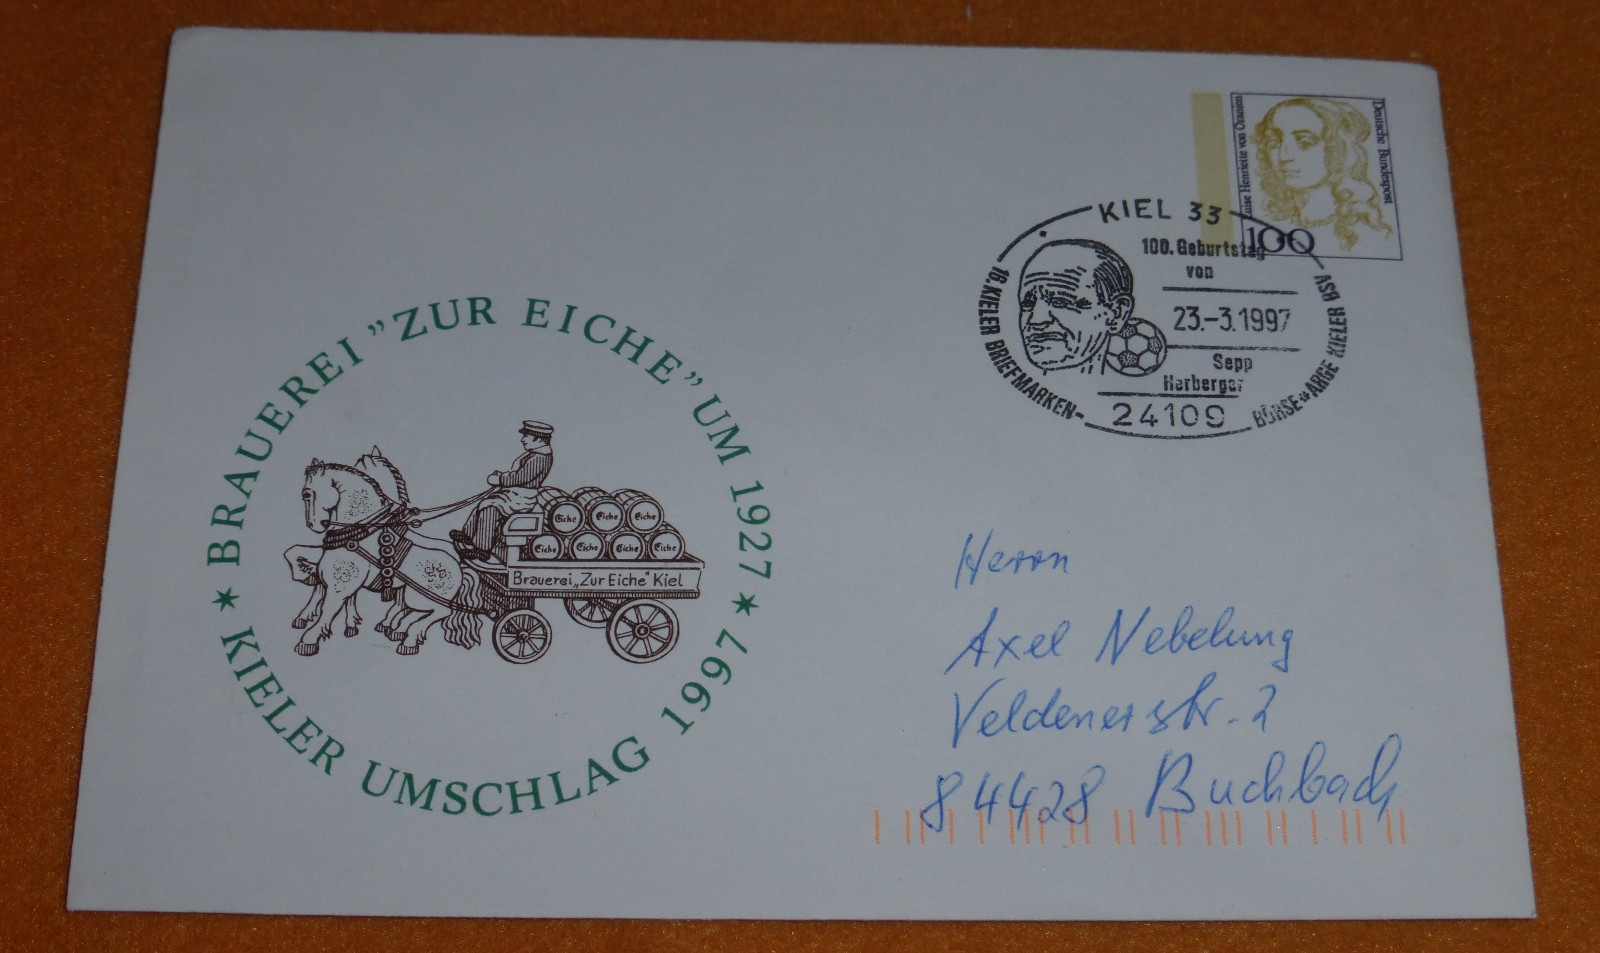 Luise Henriette von Oranien
Deutsche Bundespost
100
KIEL 33
100. Geburtstag
von
23.-3.1997
Sepp
Herberger
24109
18. KIELER BRIEFMARKEN-
BÖRSE * ARGE KIELER BSV
BRAUEREI "ZUR EICHE" UM 1927
Eiche Eiche Eiche
Eiche Eiche Eiche Eiche
Brauerei „Zur Eiche" Kiel
* KIELER UMSCHLAG 1997 *
Herrn
Axel Nebelung
Veldenerstr. 2
84428 Buchbach